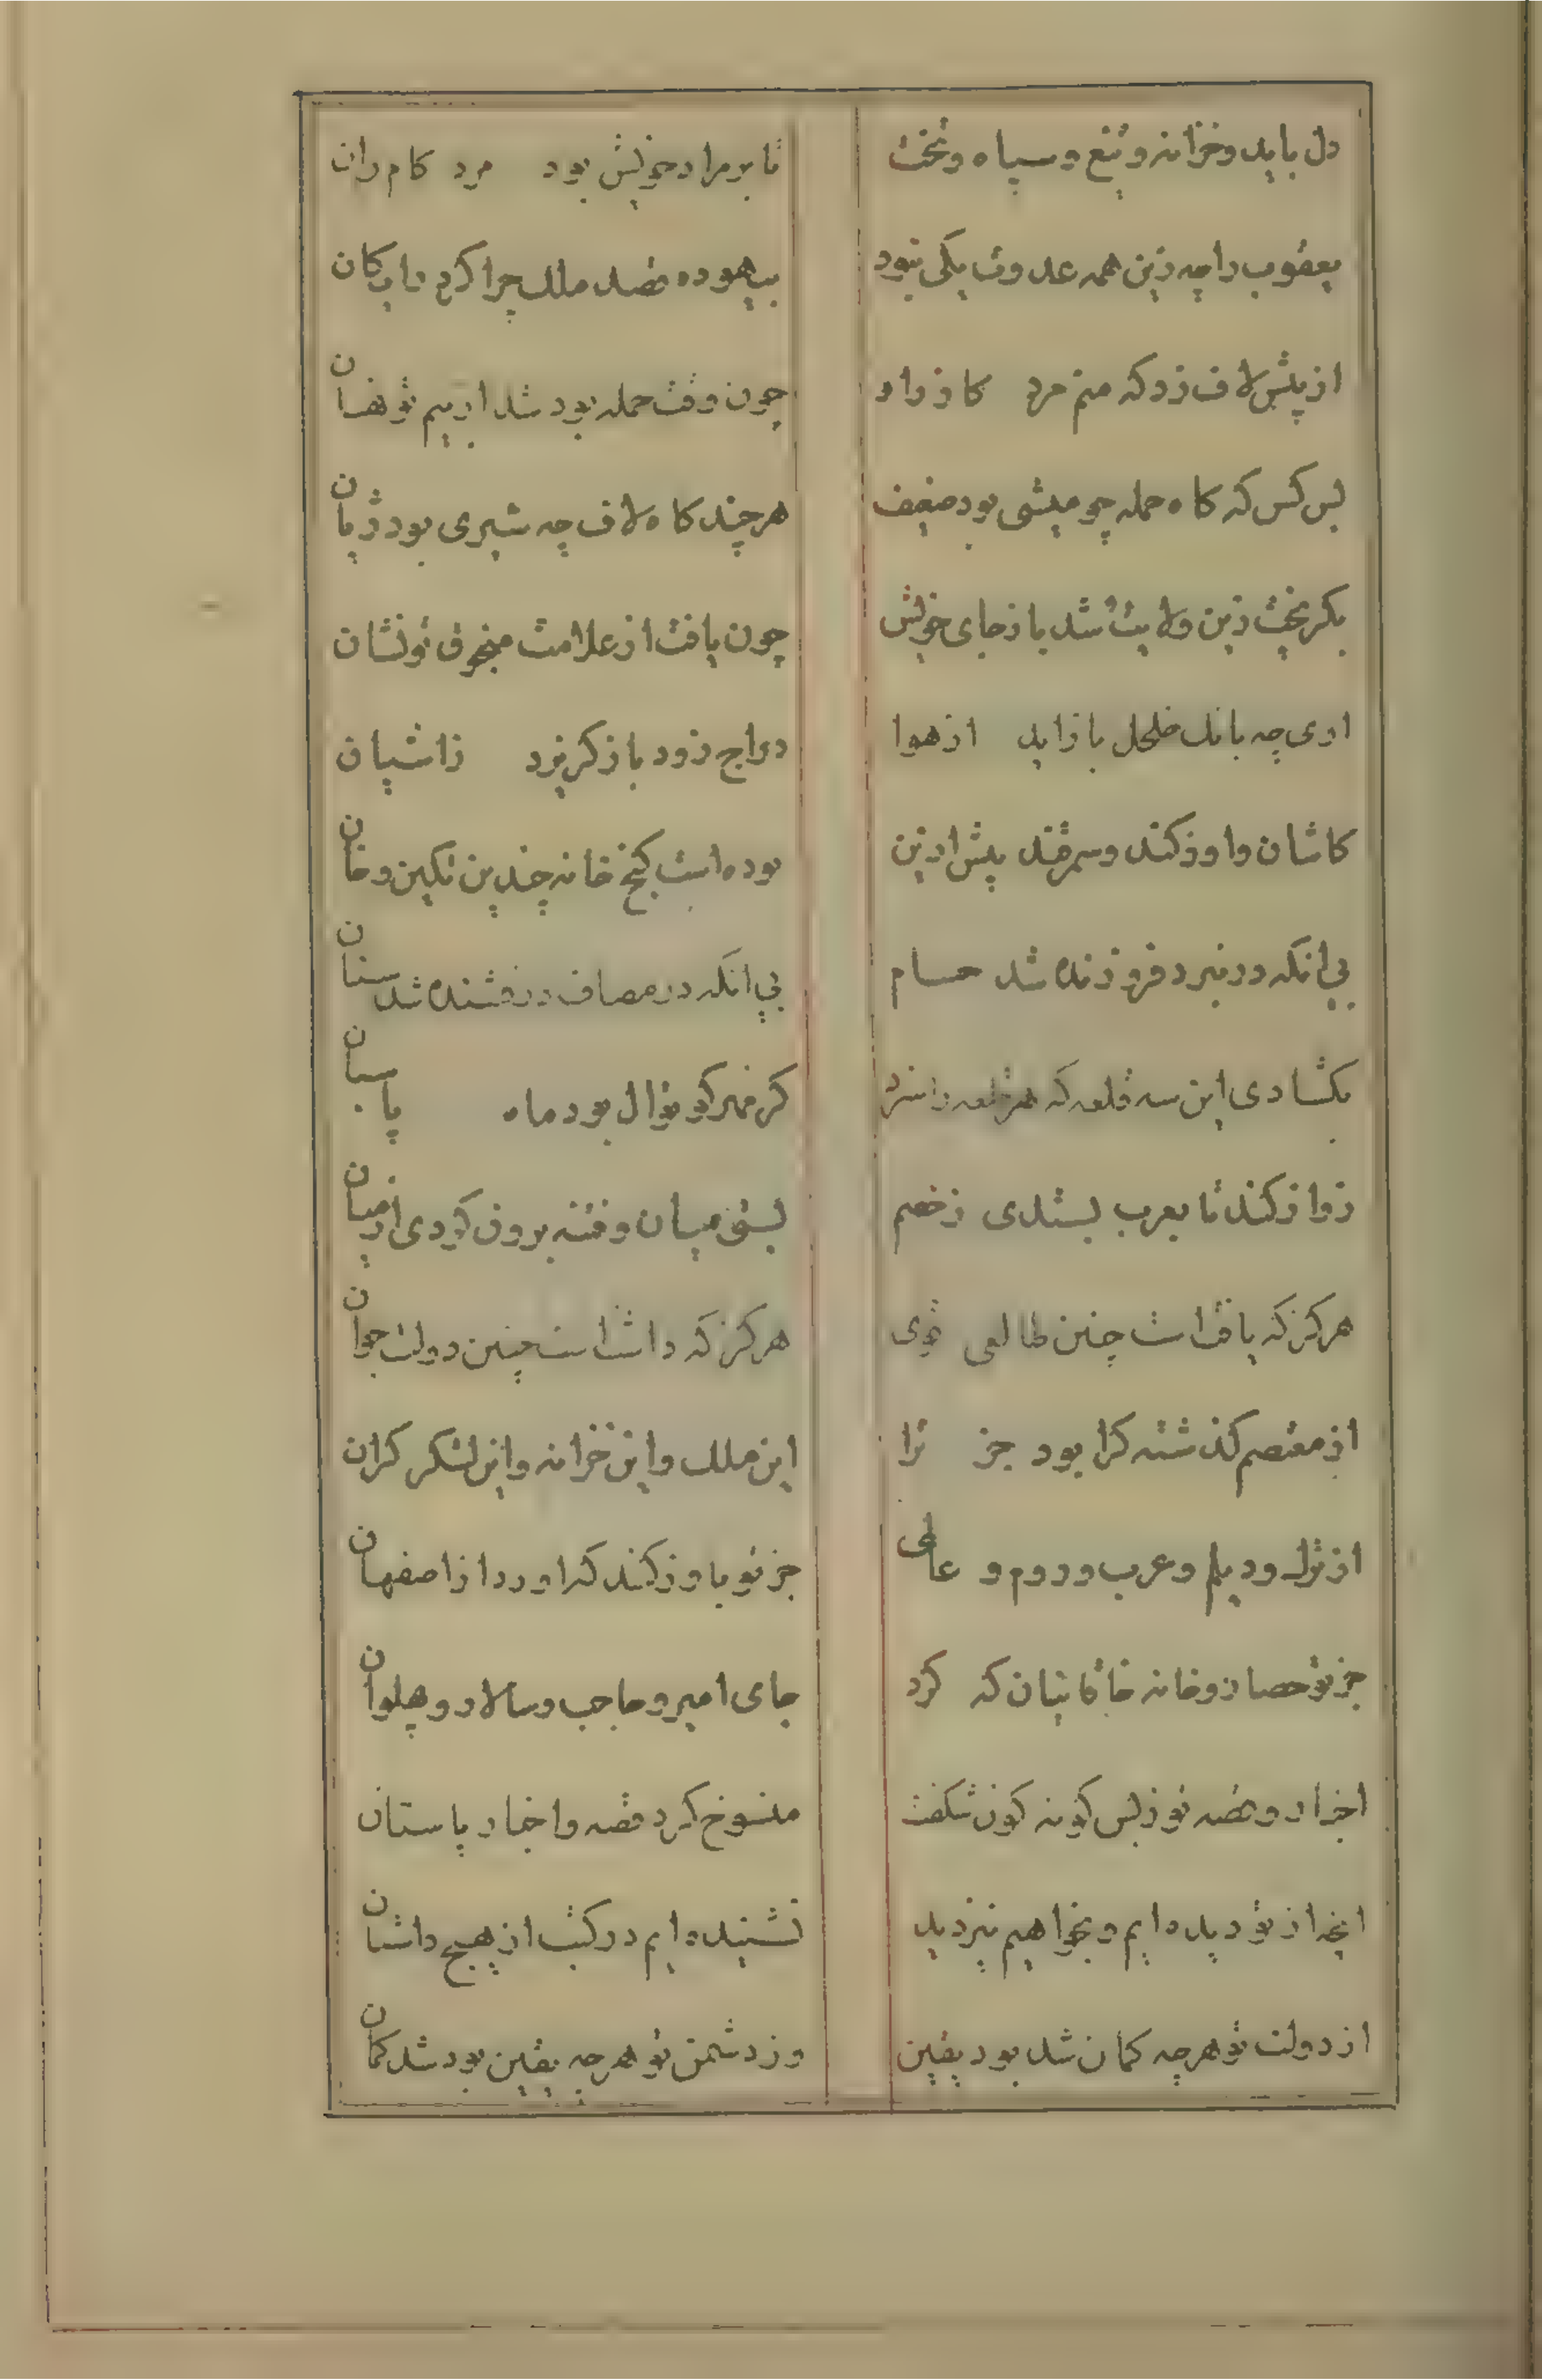 دل باید و خزانه و تیغ و سپاه و تخت
تا بر مراد خویش بود مرد کام ران
یعقوب را چه زین همه عدوت یکی نبود
بیهوده قصد ملک چرا کرد رایکان
از پیش لاف زد که منم مرد کارزار
چون وقت حمله بود شد از بیم تو نهان
بس کس که کاه حمله چو میشی بود ضعیف
هر چند کاه لاف چه شیری بود ژیان
بکریخت زین ولایت و شد باز جای خویش
چون یافت از علامت منجوق تو نشان
اری چه بانک خلخل باز اید از هوا
دراج زود باز کریزد ز اشیان
کاشان و اوزکند و سمرقند پیش ازین
بوده است کنج خانه چندین تکین و خان
بی انکه در نبرد فروزنده شد حسام
بی انکه در مصاف درفشنده شد سنان
بکشادی این سه قلعه که هر قلعه را سزد
کر مهر کوتوال بود ماه پاسبان
ز اوزکند تا بعرب بستدی ز خصم
بستی میان و فتنه برون کردی از میان
هرکز که یافت است چنین طالعی قوی
هرکز که داشت است چنین دولت جوان
از معتصم کذشته کرا بود جز ترا
این ملک و این خزانه و این لشکر کران
از ترک و دیلم و عرب و روم و عامی
جز تو باوزکند که اورد از اصفهان
جز تو حصار و خانه خاقانیان که کرد
جای امیر و حاجب و سالار و پهلوان
اخبار و قصه تو ز بس کونه کون شکفت
منسوخ کرد قصه و اخبار باستان
انچه از تو دیده ایم و بخواهیم نیز دید
نشنیده ایم در کتب از هیچ داستان
از دولت تو هرچه کمان شد بود یقین
وز دشمن تو هرچه یقین بود شد کمان